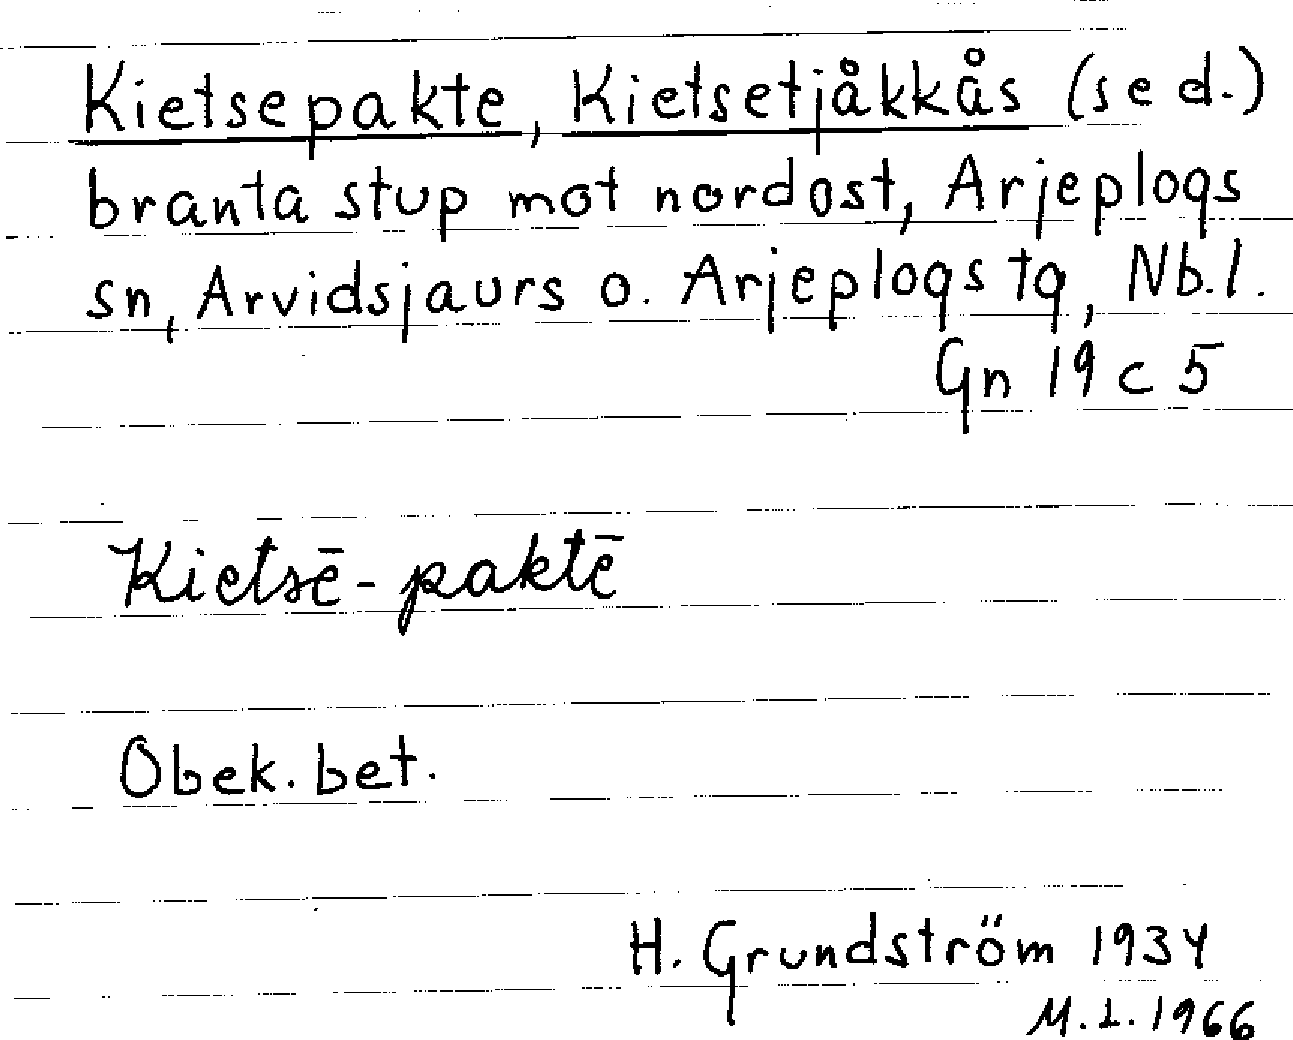 Kietsepakte, Kietsetjåkkås (se d.)
branta stup mot nordost, Arjeplogs
sn, Arvidsjaurs o. Arjeplogs tg, Nb.l.
Gn 19 c 5
Kietsē-paktē
Obek. bet.
H. Grundström 1934
M.L. 1966